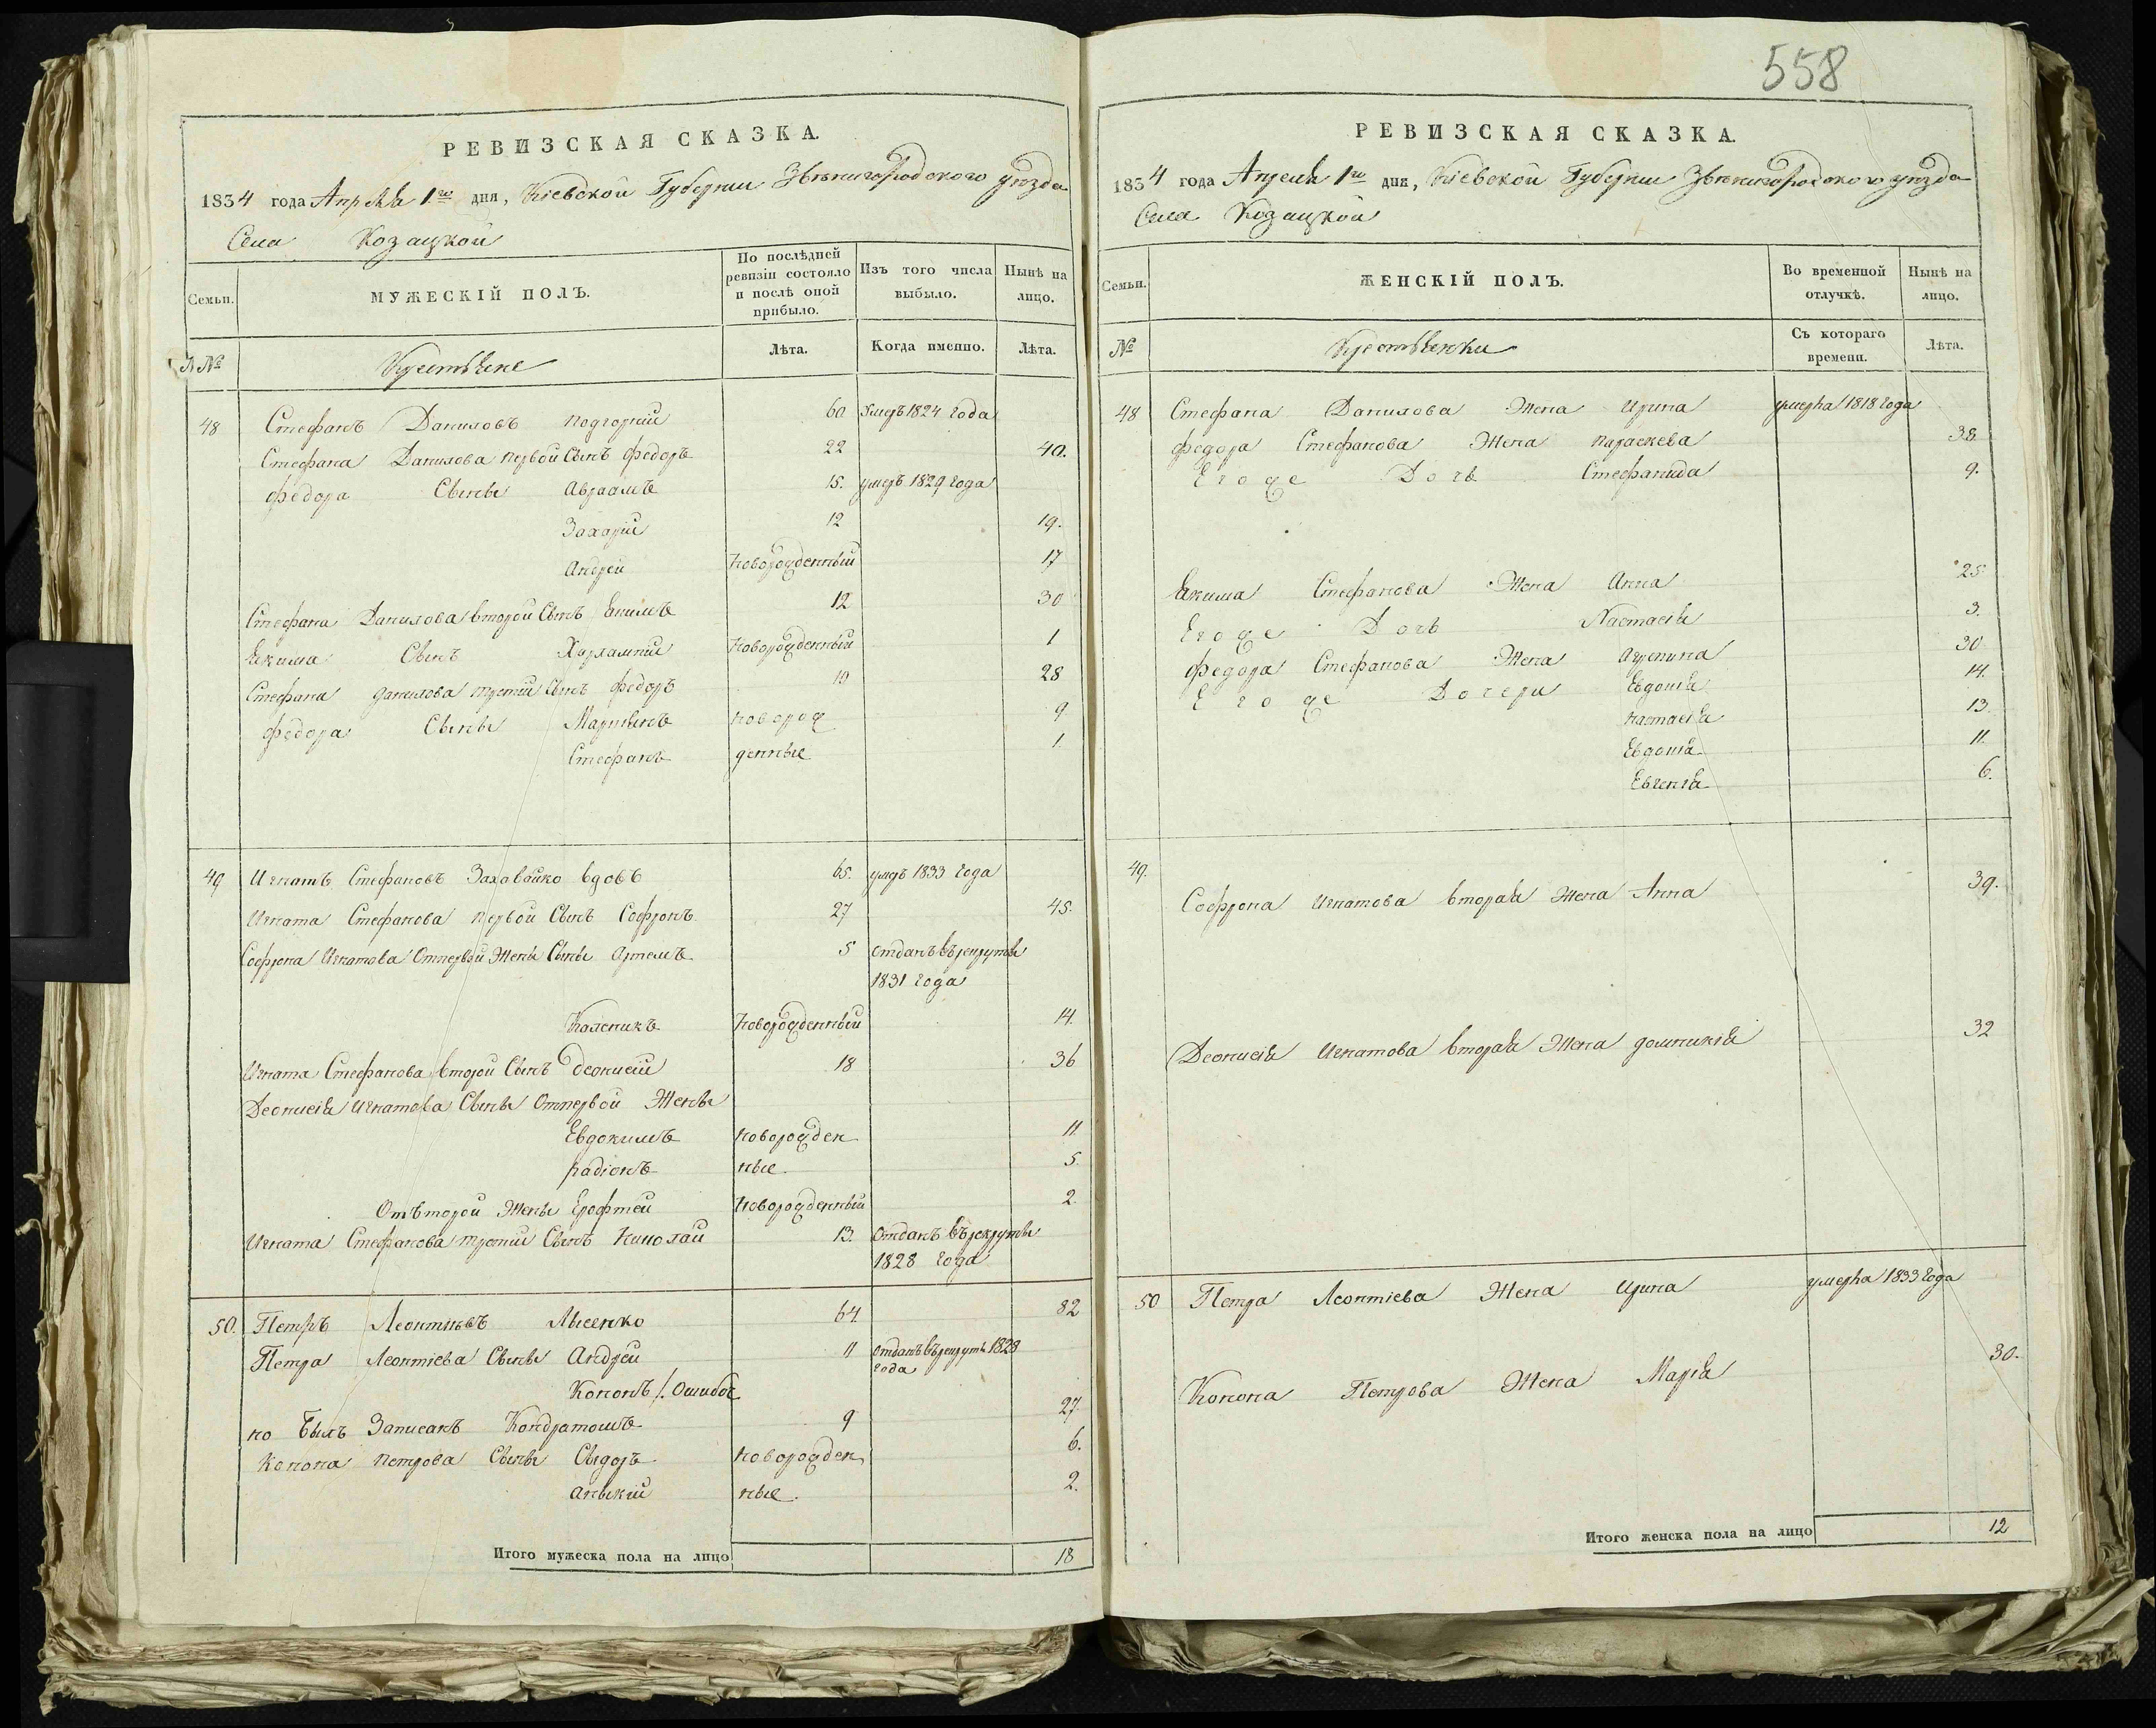 558
РЕВИЗСКАЯ СКАЗКА.
1834 года Апреля 1го дня, Кіевской Губерніи Звѣнигородского уѣзда
Села Козацкой
Семьи.
МУЖЕСКІЙ ПОЛЪ.
По послѣдней ревизіи состояло и послѣ оной прибыло.
Изъ того числа выбыло.
Нынѣ на лицо.
№
Крестьяне
Лѣта.
Когда именно.
Лѣта.
48 Стефанъ Даниловъ Подгорній 60 Умеръ 1824 года
Стефана Данилова первой Сынъ федоръ 22 40.
федора Сыны Авраамъ 15. умеръ 1829 года
Захарій 12 19.
Андрей Новорожденный 17
Стефана Данилова второй Сынъ Екимъ 12 30
Екима Сынъ Харлампій Новорожденный 1
Стефана Данилова третій Сынъ федоръ 10 28
федора Сыны Мартынъ новорож 9
Стефанъ денные 1.
49 Игнатъ Стефановъ Захавайко вдовъ 65. умеръ 1833 года
Игната Стефанова первой Сынъ Софронъ 27 45.
Софрона Игнатова От первой Жены Сыны Артемъ 5 отданъ въ рекруты
1831 года
Каленикъ Новорожденный 14.
Игната Стефанова второй Сынъ Деонисій 18 36
Деонисія Игнатова Сыны От первой Жены
Евдокимъ новорожден 11.
Радіонъ ные. 5.
От второй Жены Ерофтей Новорожденный 2.
Игната Стефанова третій Сынъ Николай 13. Отданъ въ рекруты
1828 года
50. Петръ Леонтіевъ Лысенко 64 82
Петра Леонтіева Сыны Андрей 11 отданъ въ рекруты 1828
года
Кононъ /: Ошибоч
но былъ Записанъ Кондратомъ 9 27
Конона Петрова Сыны Сыдоръ новорожден 6.
Аныкій ные. 2.
Итого мужеска пола на лицо 18
РЕВИЗСКАЯ СКАЗКА.
1834 года Апреля 1го дня, Кіевской Губерніи Звѣнигородского уѣзда
Села Козацкой
Семьи.
ЖЕНСКІЙ ПОЛЪ.
Во временной отлучкѣ.
Нынѣ на лицо.
№
Крестьянки
Съ котораго времени.
Лѣта.
48 Стефана Данилова Жена Ирина умерла 1818 года
федора Стефанова Жена Параскева 38
Егоже Дочь Стефанида 9.
Екима Стефанова Жена Анна 25
Егоже Дочь Настасія 3.
федора Стефанова Жена Агрепина 30
Егоже Дочери Евдокія 14.
Настасія 13.
Евдокія 11.
Евгенія 6.
49. Софрона Игнатова вторая Жена Анна 39.
Деонисія Игнатова вторая Жена домникія 32
50 Петра Леонтіева Жена Ирина умерла 1833 года
Конона Петрова Жена Марія 30.
Итого женска пола на лицо 12